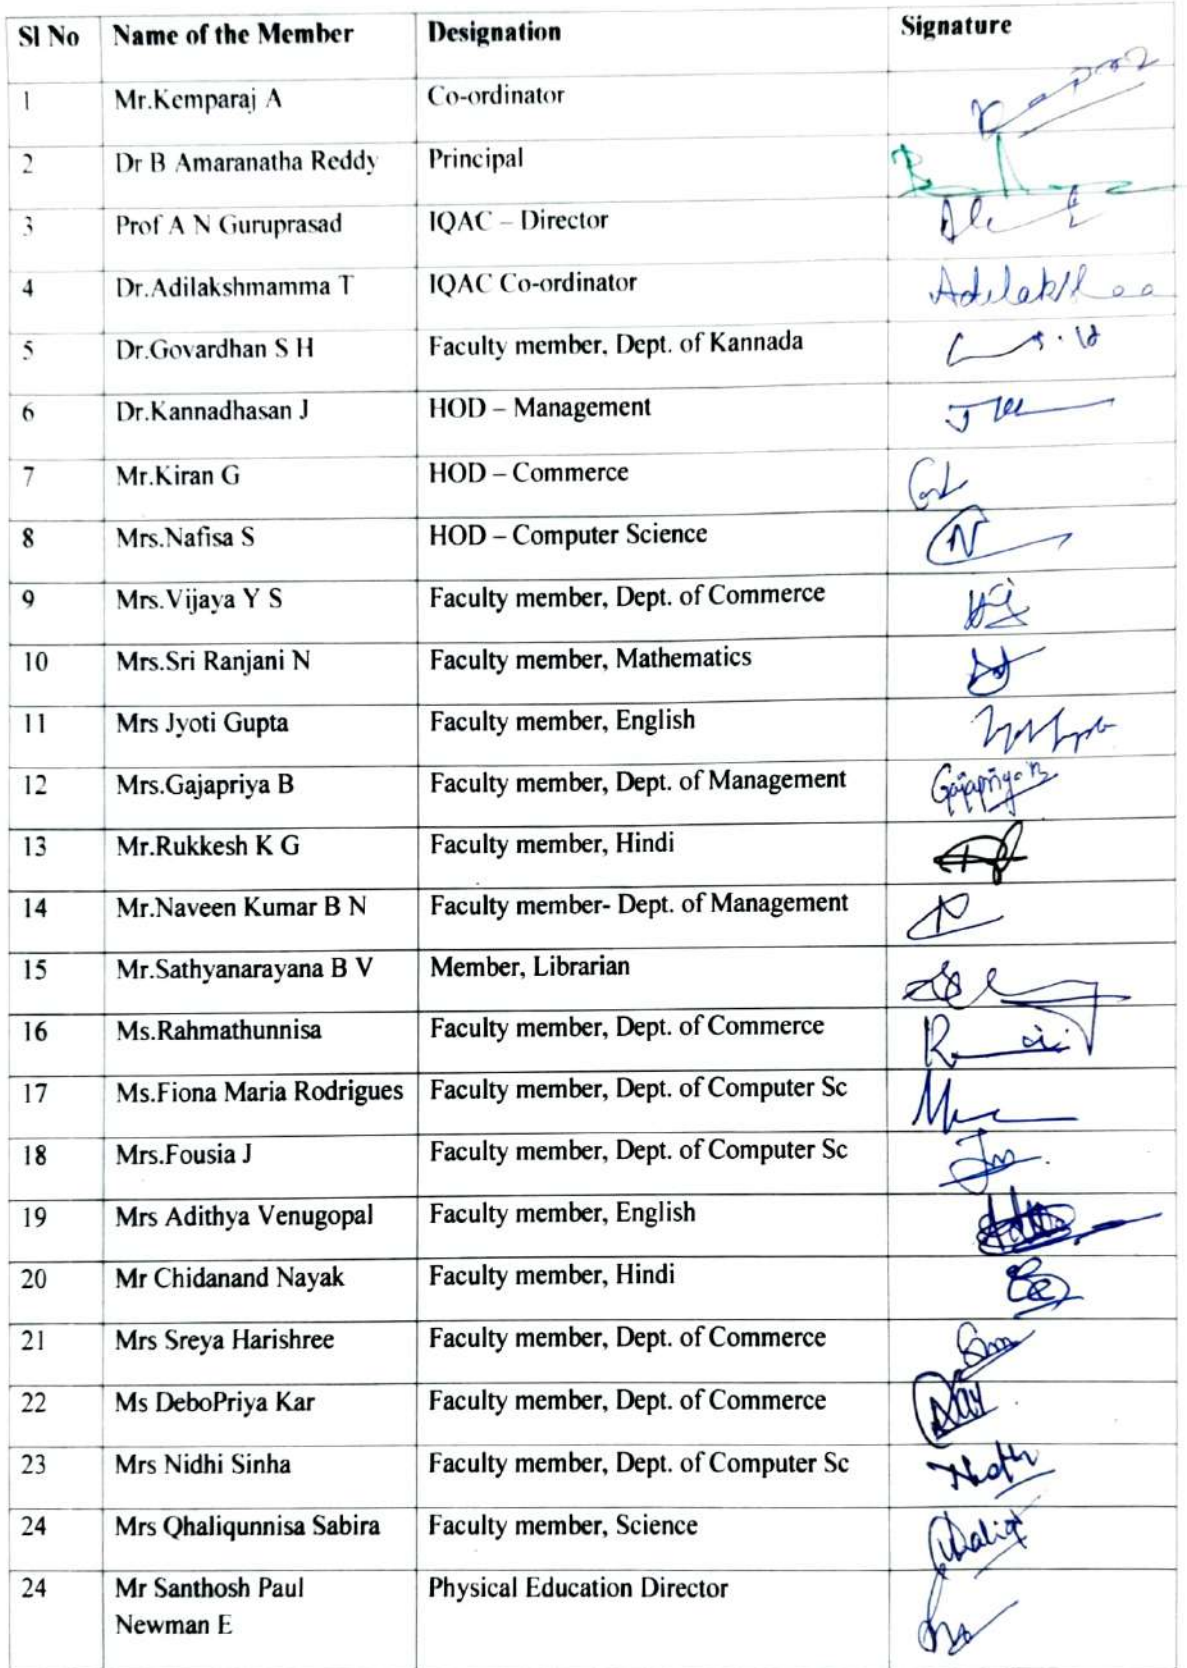 Sl No Name of the Member Designation Signature
1 Mr.Kemparaj A Co-ordinator
2 Dr B Amaranatha Reddy Principal
3 Prof A N Guruprasad IQAC – Director
4 Dr.Adilakshmamma T IQAC Co-ordinator
5 Dr.Govardhan S H Faculty member, Dept. of Kannada
6 Dr.Kannadhasan J HOD – Management
7 Mr.Kiran G HOD – Commerce
8 Mrs.Nafisa S HOD – Computer Science
9 Mrs.Vijaya Y S Faculty member, Dept. of Commerce
10 Mrs.Sri Ranjani N Faculty member, Mathematics
11 Mrs Jyoti Gupta Faculty member, English
12 Mrs.Gajapriya B Faculty member, Dept. of Management Gajapriya B
13 Mr.Rukkesh K G Faculty member, Hindi
14 Mr.Naveen Kumar B N Faculty member- Dept. of Management
15 Mr.Sathyanarayana B V Member, Librarian
16 Ms.Rahmathunnisa Faculty member, Dept. of Commerce
17 Ms.Fiona Maria Rodrigues Faculty member, Dept. of Computer Sc
18 Mrs.Fousia J Faculty member, Dept. of Computer Sc
19 Mrs Adithya Venugopal Faculty member, English
20 Mr Chidanand Nayak Faculty member, Hindi
21 Mrs Sreya Harishree Faculty member, Dept. of Commerce
22 Ms DeboPriya Kar Faculty member, Dept. of Commerce
23 Mrs Nidhi Sinha Faculty member, Dept. of Computer Sc
24 Mrs Qhaliqunnisa Sabira Faculty member, Science
24 Mr Santhosh Paul Physical Education Director
Newman E